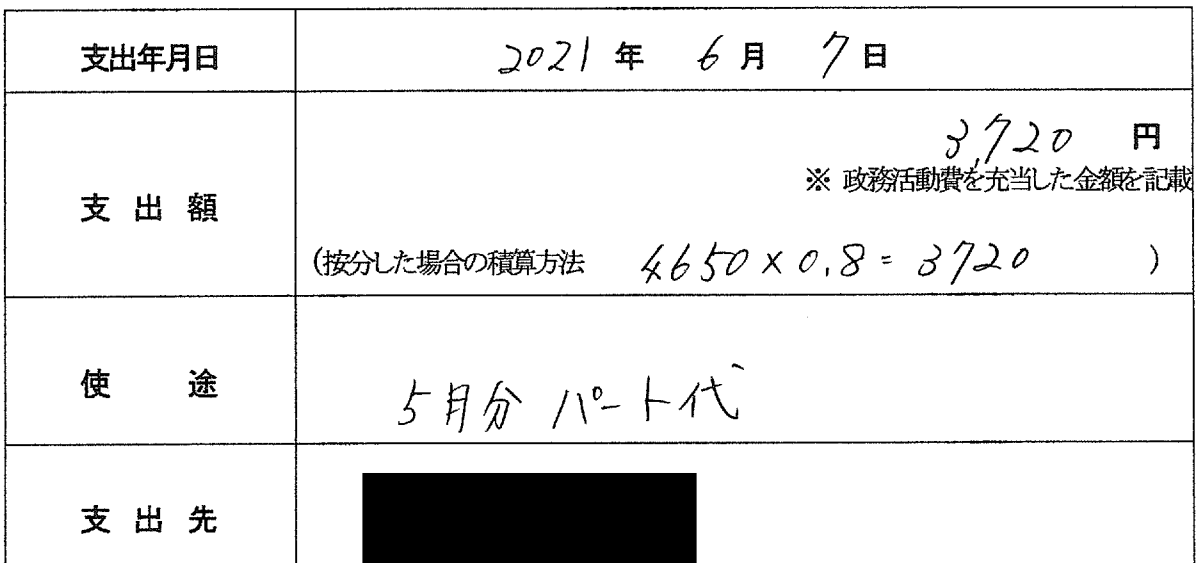 支出年月日 2021 年 6 月 7 日
支出額 3,720 円
※ 政務活動費を充当した金額を記載
(按分した場合の積算方法 4650×0.8=3720 )
使途 5月分 パート代
支出先